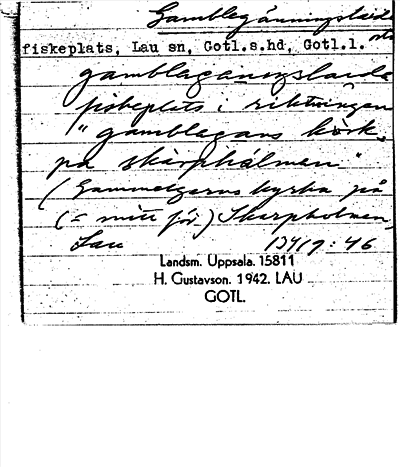 Gamblegånningslaide
fiskeplats, Lau sn, Gotl.s.hd, Gotl.l.
gamblagangslaide
fiskeplats i riktningen
"gamblagans körk
på skarphålmen"
(Gammelgarns kyrka på
(= mitt för) Skarpholmen,
Lau 1719:46
Landsm. Uppsala. 15811
H. Gustavson. 1942. LAU
GOTL.